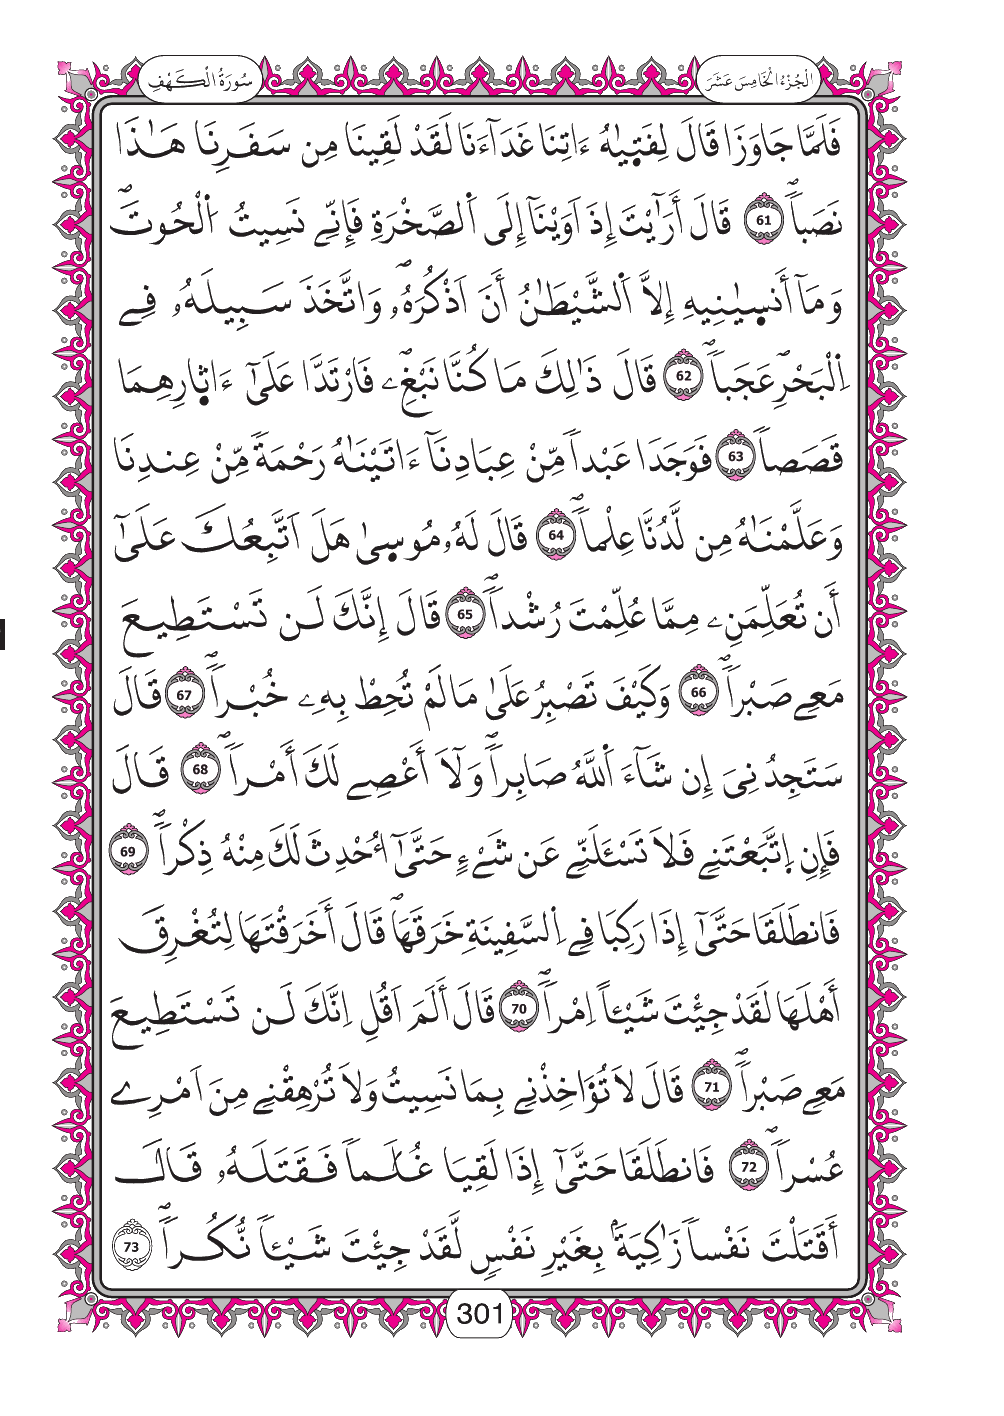 سُورَةُ الْكَهْفِ
الْجُزْءُ الْخَامِسَ عَشَرَ
فَلَمَّا جَاوَزَا قَالَ لِفَتٜيٰهُ ءَاتِنَا غَدَآءَنَا لَقَدْ لَقِينَا مِن سَفَرِنَا هَٰذَا
نَصَباٗۖ 61 قَالَ أَرَٰٓيْتَ إِذَ اَوَيْنَآ إِلَى اَ۬لصَّخْرَةِ فَإِنِّے نَسِيتُ اُ۬لْحُوتَۖ
وَمَآ أَنسٜيٰنِيهِ إِلَّا اَ۬لشَّيْطَٰنُ أَنَ اَذْكُرَهُۥۖ وَاتَّخَذَ سَبِيلَهُۥ فِے
اِ۬لْبَحْرِۖ عَجَباٗۖ 62 قَالَ ذَٰلِكَ مَا كُنَّا نَبْغِۦۖ فَارْتَدَّا عَلَىٰٓ ءَاثٜارِهِمَا
قَصَصاٗۖ 63 فَوَجَدَا عَبْداٗ مِّنْ عِبَادِنَآ ءَاتَيْنَٰهُ رَحْمَةٗ مِّنْ عِندِنَا
وَعَلَّمْنَٰهُ مِن لَّدُنَّا عِلْماٗۖ 64 قَالَ لَهُۥ مُوسٜىٰ هَلَ اَتَّبِعُكَ عَلَىٰٓ
أَن تُعَلِّمَنِۦ مِمَّا عُلِّمْتَ رُشْداٗۖ 65 قَالَ إِنَّكَ لَن تَسْتَطِيعَ
مَعِے صَبْراٗۖ 66 وَكَيْفَ تَصْبِرُ عَلَىٰ مَا لَمْ تُحِطْ بِهِۦ خُبْراٗۖ 67 قَالَ
سَتَجِدُنِىَ إِن شَآءَ اَ۬للَّهُ صَابِراٗۖ وَلَآ أَعْصِے لَكَ أَمْراٗۖ 68 قَالَ
فَإِنِ اِ۪تَّبَعْتَنِے فَلَا تَسْـَٔلَنِّے عَن شَےْءٍ حَتَّىٰٓ أُحْدِثَ لَكَ مِنْهُ ذِكْراٗۖ 69
فَانطَلَقَا حَتَّىٰٓ إِذَا رَكِبَا فِے اِ۬لسَّفِينَةِ خَرَقَهَاۖ قَالَ أَخَرَقْتَهَا لِتُغْرِقَ
أَهْلَهَا لَقَدْ جِئْتَ شَيْـٔاً اِمْراٗۖ 70 قَالَ أَلَمَ اَقُلِ اِنَّكَ لَن تَسْتَطِيعَ
مَعِے صَبْراٗۖ 71 قَالَ لَا تُؤَاخِذْنِے بِمَا نَسِيتُ وَلَا تُرْهِقْنِے مِنَ اَمْرِے
عُسْراٗۖ 72 فَانطَلَقَا حَتَّىٰٓ إِذَا لَقِيَا غُلَٰماٗ فَقَتَلَهُۥ قَالَ
أَقَتَلْتَ نَفْساٗ زَاكِيَةَۢ بِغَيْرِ نَفْسٍ لَّقَدْ جِئْتَ شَيْـٔاٗ نُّكُراٗۖ 73
301